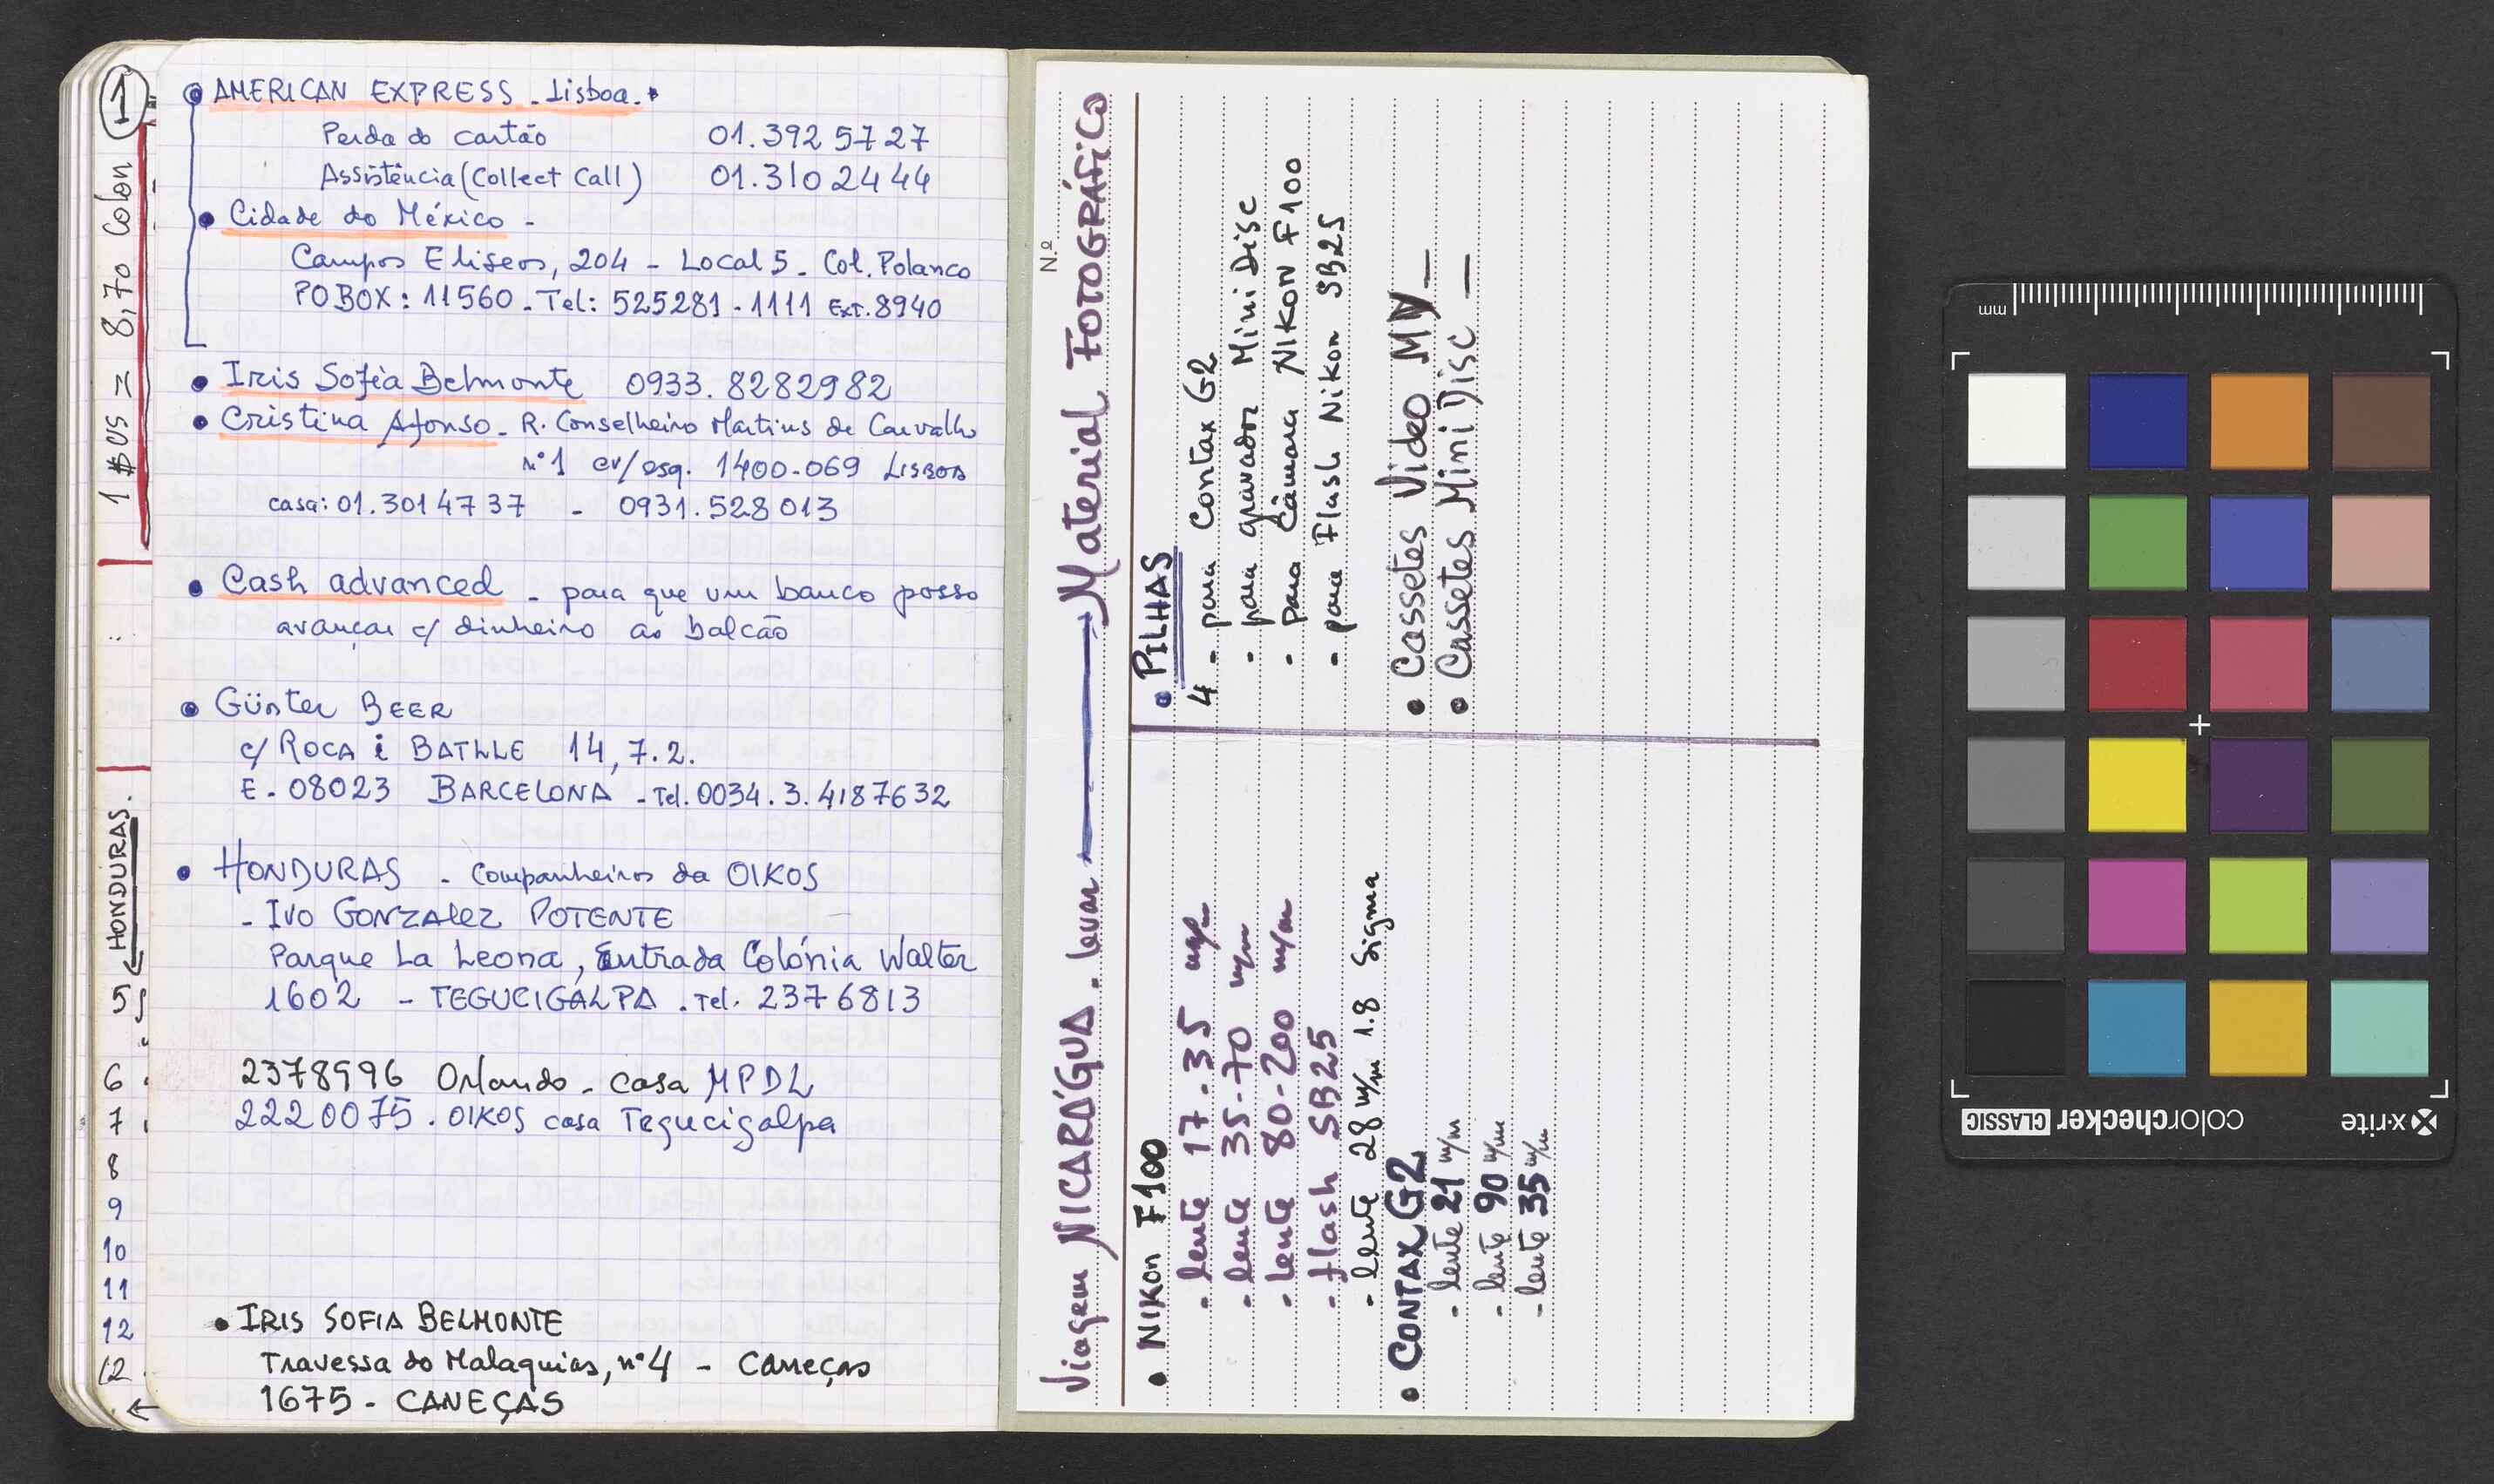 1
1 $US = 8,70 Colon
HONDURAS.
5
6
7
8
9
10
11
12
12
• AMERICAN EXPRESS - Lisboa.
Perda do cartão 01.392 57 27
Assistência (Collect Call) 01.310 24 44
• Cidade do México -
Campos Eliseos, 204 - Local 5 - Col. Polanco
PO BOX: 11560 - Tel: 525281 - 1111 Ext. 8940
• Iris Sofia Belmonte 0933. 8282982
• Cristina Afonso - R. Conselheiro Martins de Carvalho
nº 1 cv/esq. 1400-069 LISBOA
casa: 01.301 47 37 - 0931.528 013
• Cash advanced - para que um banco posso
avançar c/ dinheiro ao balcão
• Günter BEER
c/ ROCA i BATLLE 14, 7. 2.
E - 08023 BARCELONA - Tel. 0034. 3. 4187632
• HONDURAS - Companheiros da OIKOS
- IVO GONZALEZ POTENTE
Parque La Leona, Entrada Colónia Walter
1602 - TEGUCIGÁLPA . Tel. 2376813
2378996 Orlando - casa MPDL
2220075 . OIKOS casa Tegucigalpa
• IRIS SOFIA BELMONTE
Travessa do Malaquias, nº 4 - Caneças
1675 - CANEÇAS
N.º
Viagem NICARÁGUA . levar Material FOTOGRÁFICO
• NIKON F100
- lente 17-35 m/m
- lente 35-70 m/m
- lente 80-200 m/m
- flash SB25
- lente 28 m/m 1.8 Sigma
• CONTAX G2
- lente 21 m/m
- lente 90 m/m
- lente 35 m/m
• PILHAS
4 - para Contax G2
- para gravador Mini Disc
- para Câmara NIKON F100
- para Flash Nikon SB25
• Cassetes Video MV —
• Cassetes Mini Disc —
mm
x-rite
colorchecker CLASSIC